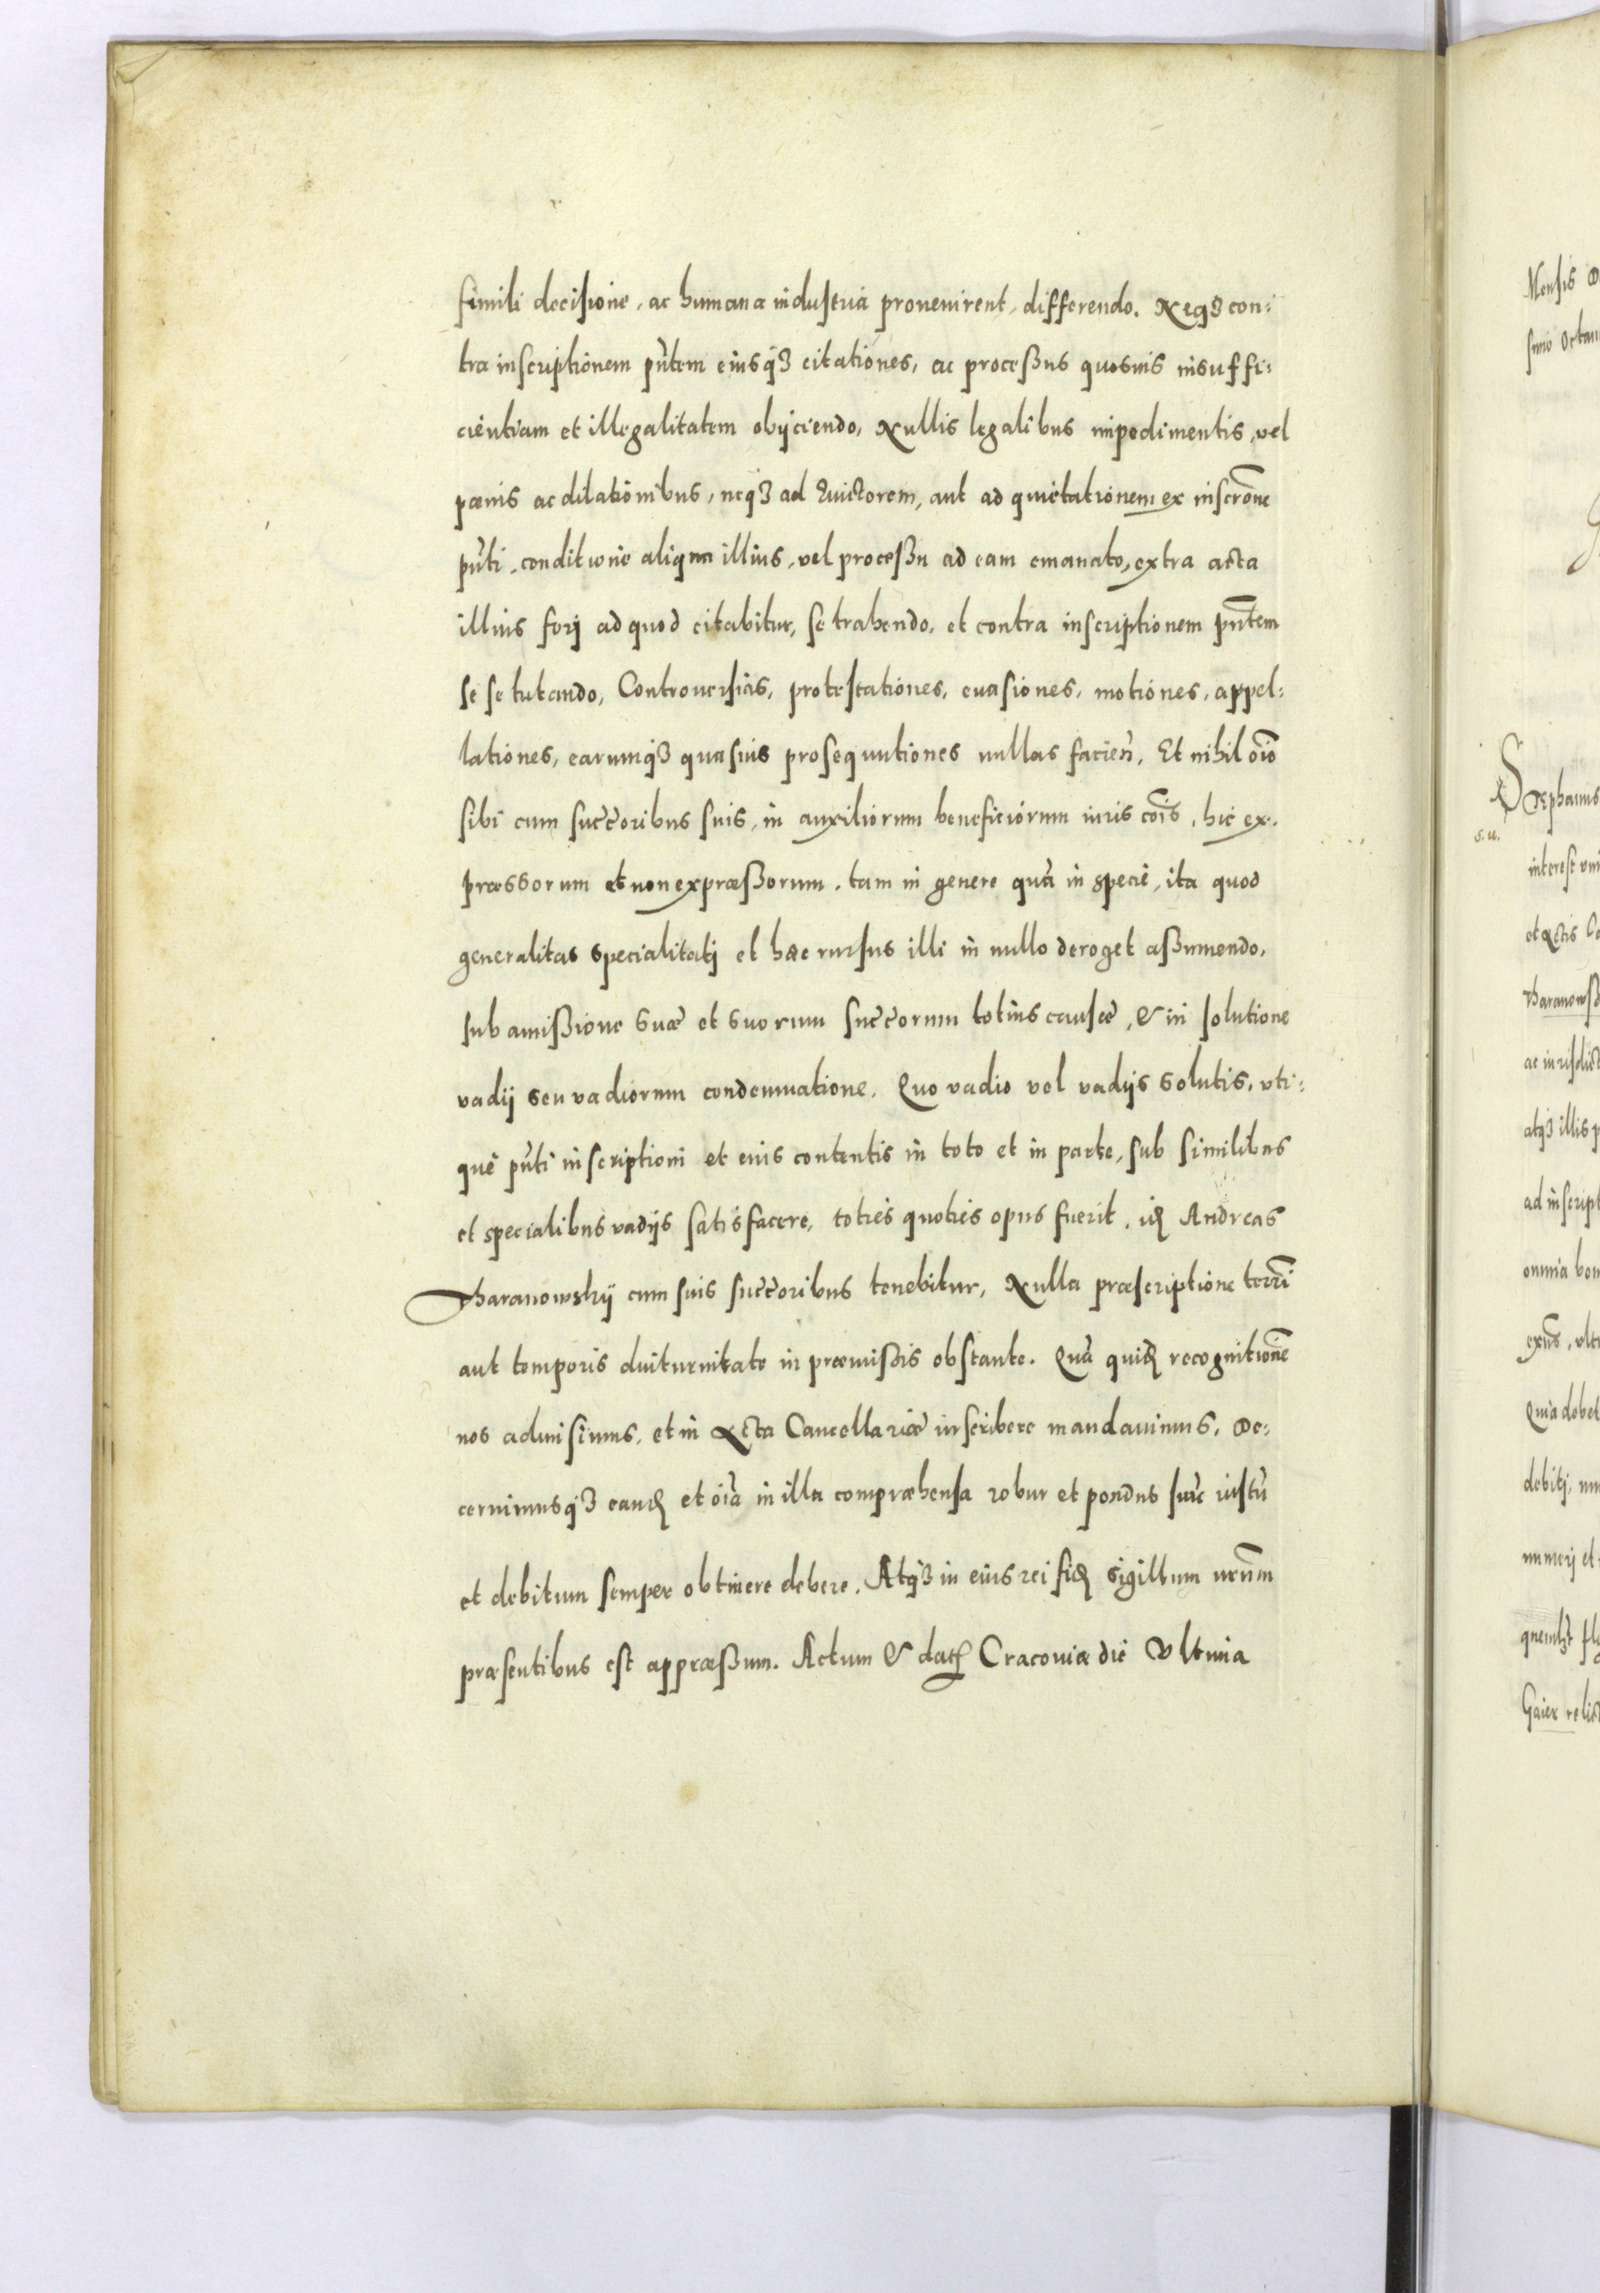 simili decisione, ac humana industria provenirent, differendo. Neqȝ con:
tra inscriptionem pñtem eiusqȝ citationes, ac processus quosvis insuffi:
cientiam et illegalitatem obijciendo, Nullis legalibus impedimentis, vel
pœnis ac dilationibus, neqȝ ad Evictorem, aut ad quietationem ex inscrõne
pñti, conditione aliqua illius, vel processu ad eam emanato, extra acta
illius forj ad quod citabitur, se trahendo, et contra inscriptionem pñtem
se se tutando, Controversias, protestationes, evasiones, motiones, appel:
lationes, earumqȝ quasvis prosequutiones nullas facieñ. Et nihil oĩo
sibi cum succ̃oribus suis, in auxiliorum beneficiorum iuris cõis, hic ex:
præssorum et non expræssorum, tam in genere quã in specie, ita quod
generalitas specialitatj et hæc rursus illi in nullo deroget assumendo,
sub amissione suæ et suorum succ̃orum totius causæ, & in solutione
vadij seu vadiorum condemnatione. Quo vadio vel vadijs solutis, uti:
que pñti inscriptioni et eius contentis in toto et in parte, sub similibus
et specialibus vadijs satisfacere, toties quoties opus fuerit, idē Andreas
Tharanowskij cum suis succ̃oribus tenebitur, Nulla præscriptione terrĩ
aut temporis diuturnitate in præmissis obstante. Quã quidē recognitionẽ
nos admisimus, et in Acta Cancellariæ inscribere mandavimus, De:
cernimusqȝ eandē et oĩa in illa compræhensa robur et pondus suũ iustũ
et debitum semper obtinere debere. Atqȝ in eius rei fidē sigillum nr̃um
præsentibus est appræssum. Actum & datȝ Cracoviæ die Ultima
Mensis
Stephanus
s. u.
interest
et Actis
Tharanowsk
atqȝ illis
ad inscript
omnia bon
Quia debet
debiti,
numerj et
Gaier relict